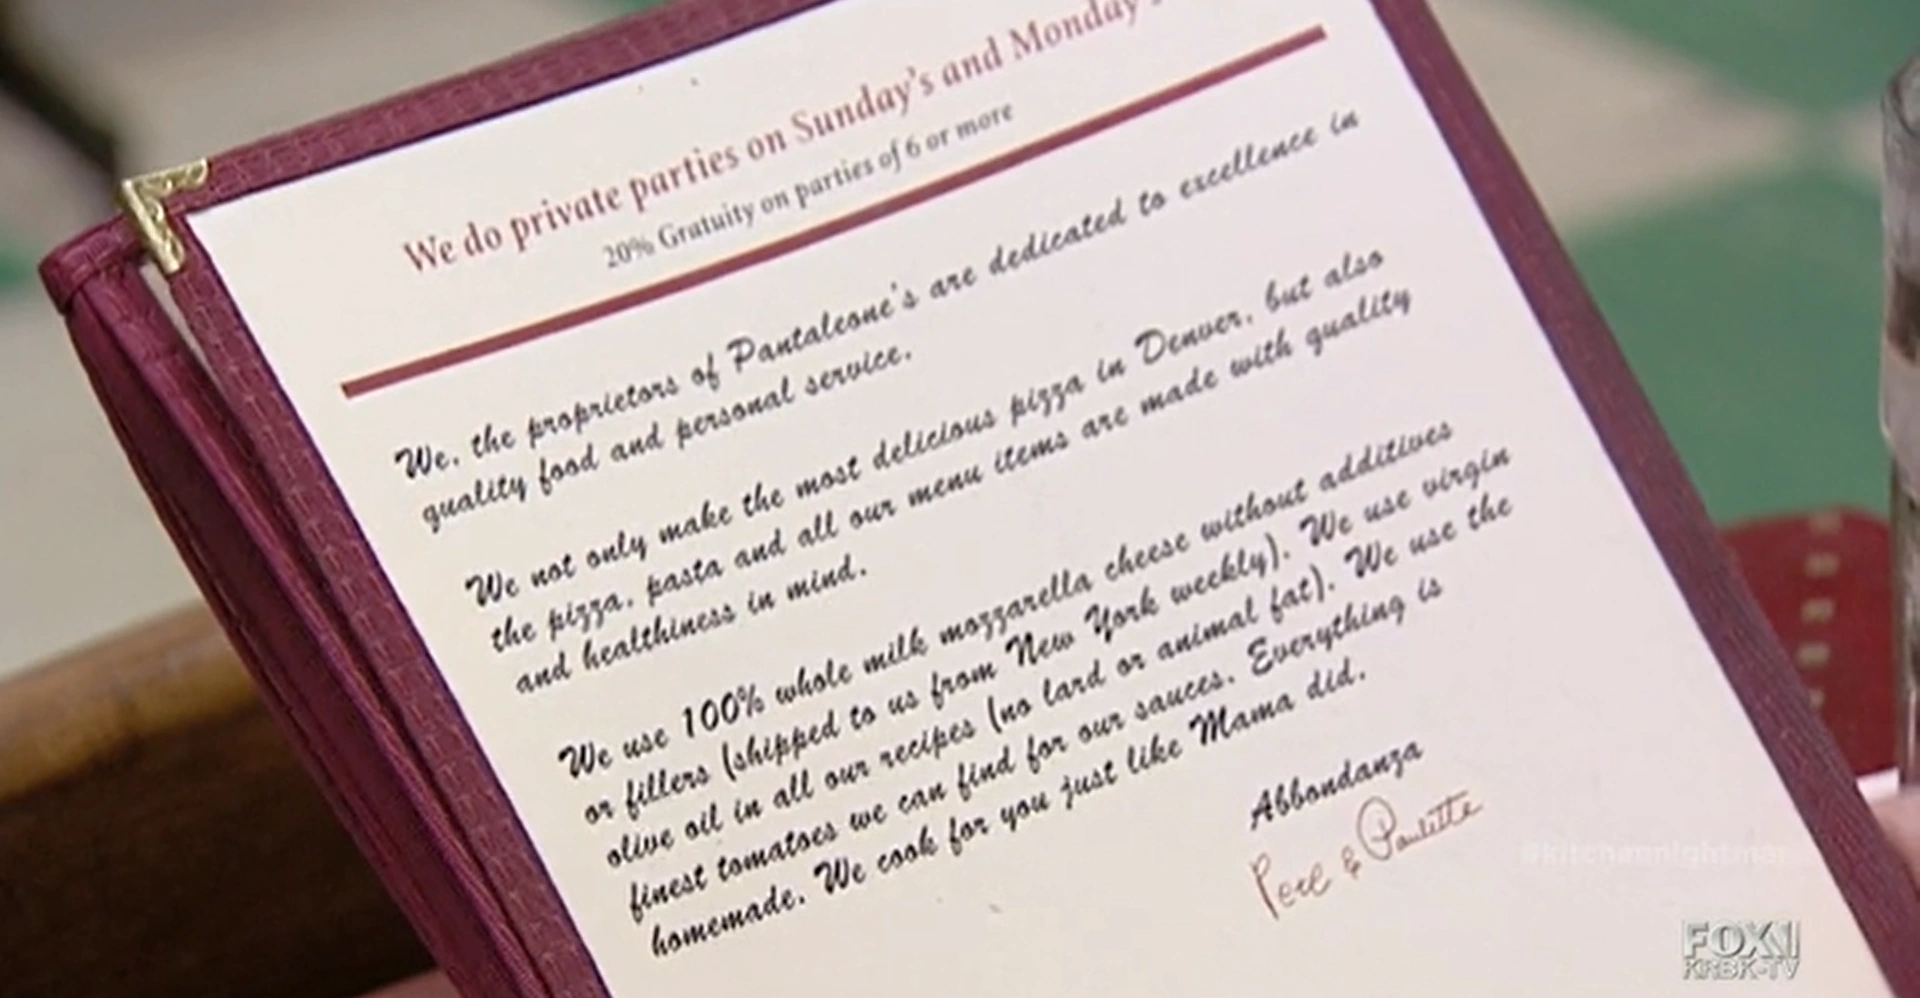 We do private parties on Sunday's and Monday's
20% Gratuity on parties of 6 or more
We, the proprietors of Pantaleone's are dedicated to excellence in
quality food and personal service.
We not only make the most delicious pizza in Denver, but also
the pizza, pasta and all our menu items are made with quality
and healthiness in mind.
We use 100% whole milk mozzarella cheese without additives
or fillers (shipped to us from New York weekly). We use virgin
olive oil in all our recipes (no lard or animal fat). We use the
finest tomatoes we can find for our sauces. Everything is
homemade. We cook for you just like Mama did.
Abbondanza
Pete & Paulette
#kitchennightmares
FOX
KRBK-TV